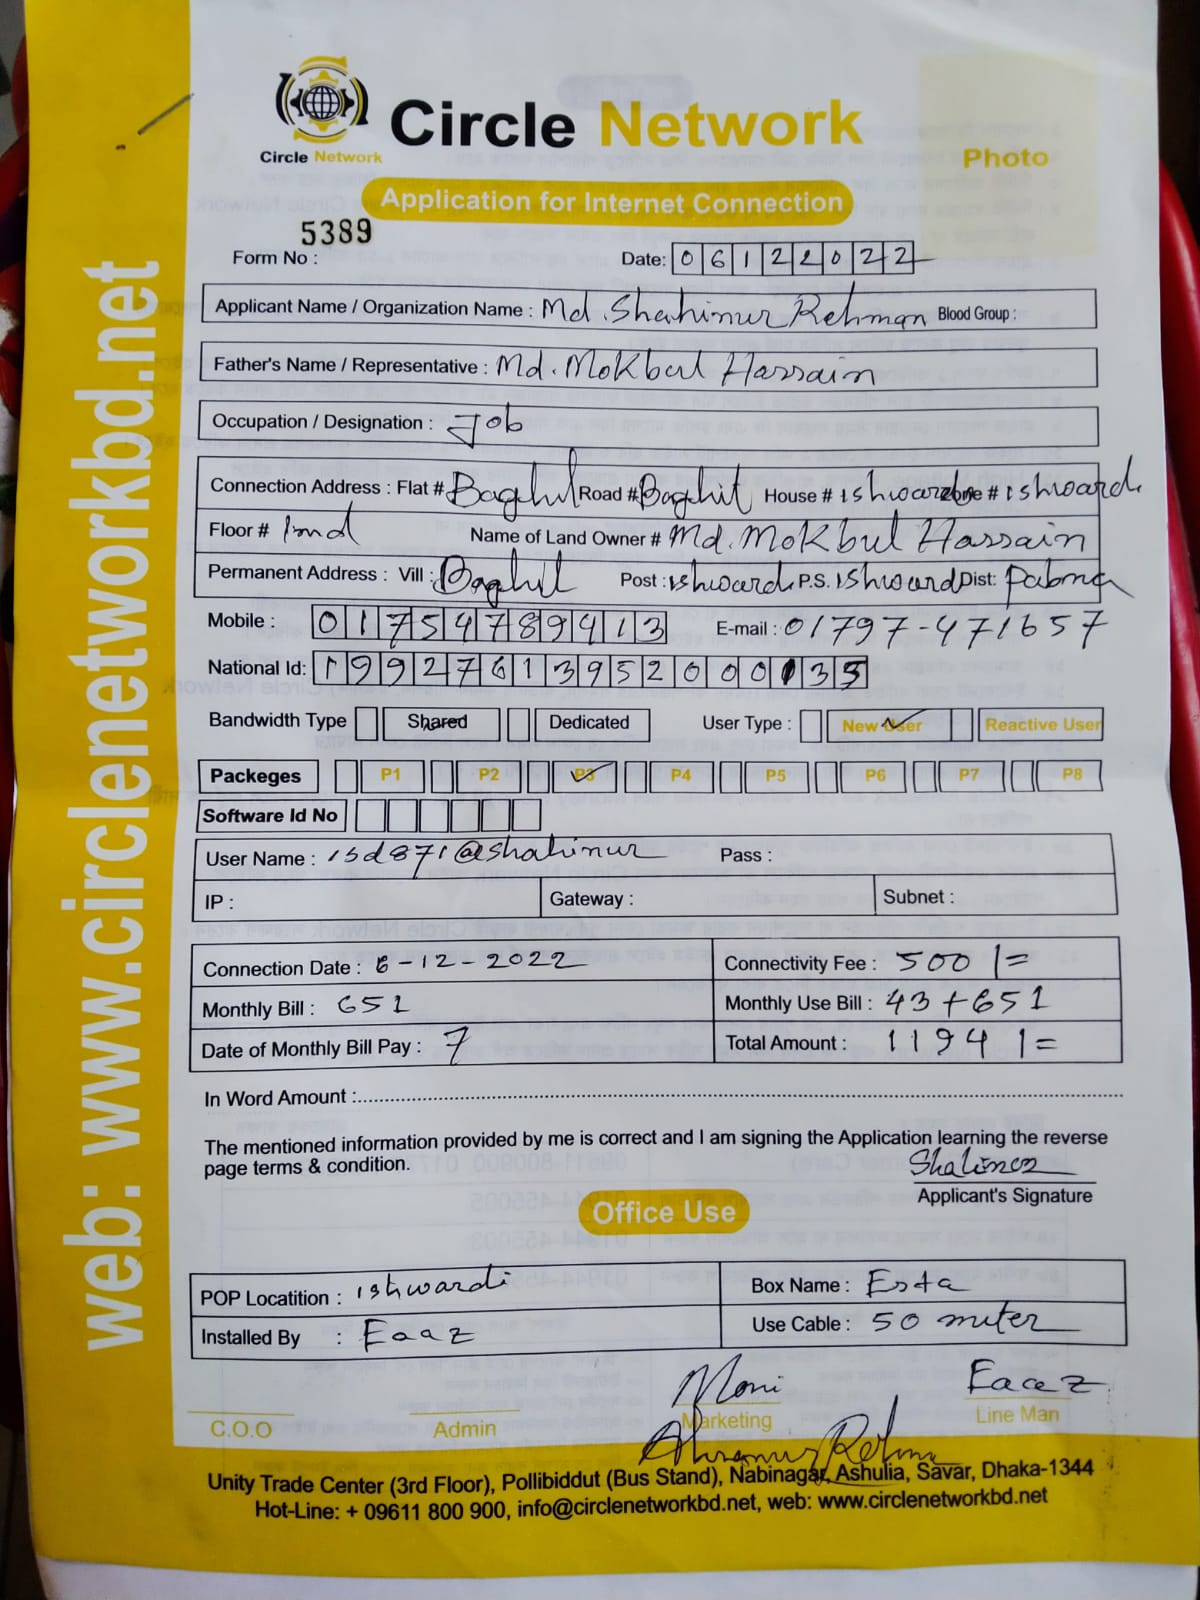 Circle Network
Circle Network
Photo
Application for Internet Connection
5389
Form No :
Date: 06122022
Applicant Name / Organization Name : Md. Shahinur Rehman Blood Group :
Father's Name / Representative : Md. Mokbul Hassain
Occupation / Designation : Job
Connection Address : Flat # Baghil Road # Baghil House # ishwardi # ishwardi
Floor # Name of Land Owner # Md. Mokbul Hassain
Permanent Address : Vill : Baghil Post : ishwardi P.S. ishwardi Dist: Pabna
Mobile : 01754789413 E-mail : 01797-471657
National Id: 19927613952000135
Bandwidth Type Shared Dedicated User Type : New User Reactive User
Packeges P1 P2 P3 P4 P5 P6 P7 P8
Software Id No
User Name : isd871@shahinur Pass :
IP : Gateway : Subnet :
Connection Date : 6-12-2022 Connectivity Fee : 500/=
Monthly Bill : 651 Monthly Use Bill : 43+651
Date of Monthly Bill Pay : 7 Total Amount : 1194/=
In Word Amount :
The mentioned information provided by me is correct and I am signing the Application learning the reverse
page terms & condition.
Applicant's Signature
Office Use
POP Locatition : ishwardi Box Name : Esta
Installed By : Eaaz Use Cable : 50 miter
Moni Eaaz
C.O.O Admin Marketing Line Man
Unity Trade Center (3rd Floor), Pollibiddut (Bus Stand), Nabinagar, Ashulia, Savar, Dhaka-1344
Hot-Line: + 09611 800 900, info@circlenetworkbd.net, web: www.circlenetworkbd.net
web: www.circlenetworkbd.net